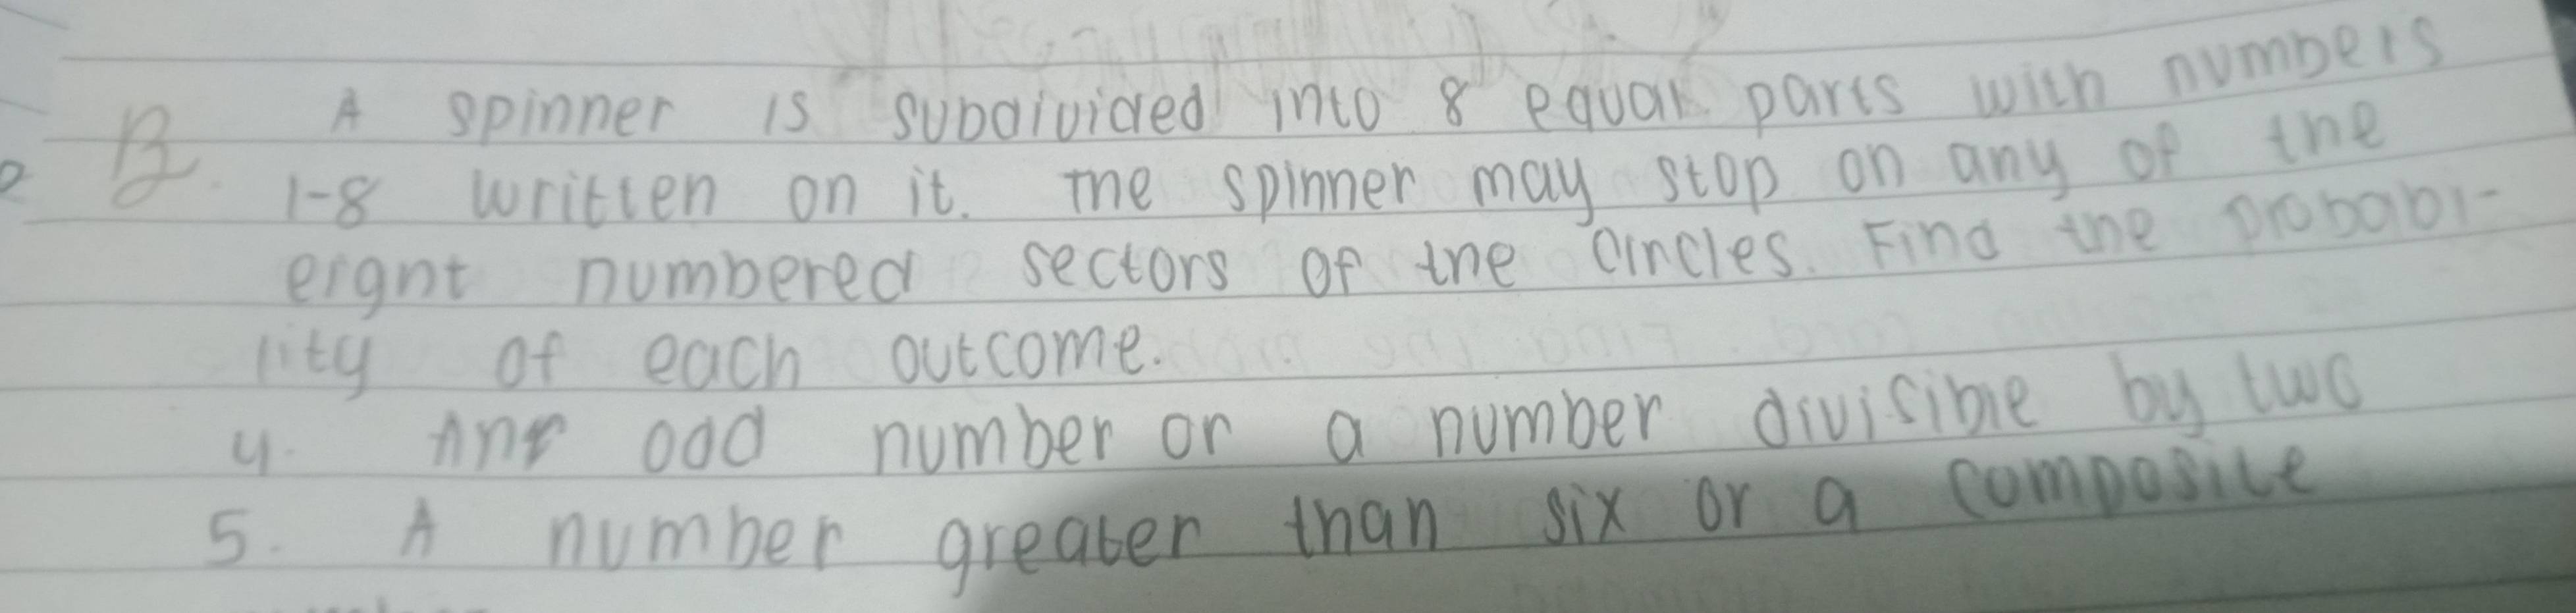 B. A spinner is subdivided into 8 equal parts with numbers
1-8 written on it. The spinner may stop on any of the
eight numbered sectors of the circles. Find the probabi-
lity of each outcome.
4. odd number or a number divisible by two
5. A number greater than six or a composite